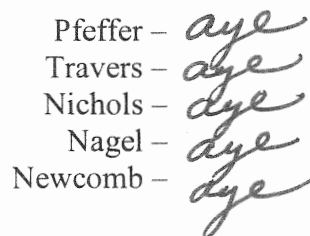 Pfeffer – aye
Travers – aye
Nichols – aye
Nagel – aye
Newcomb – aye